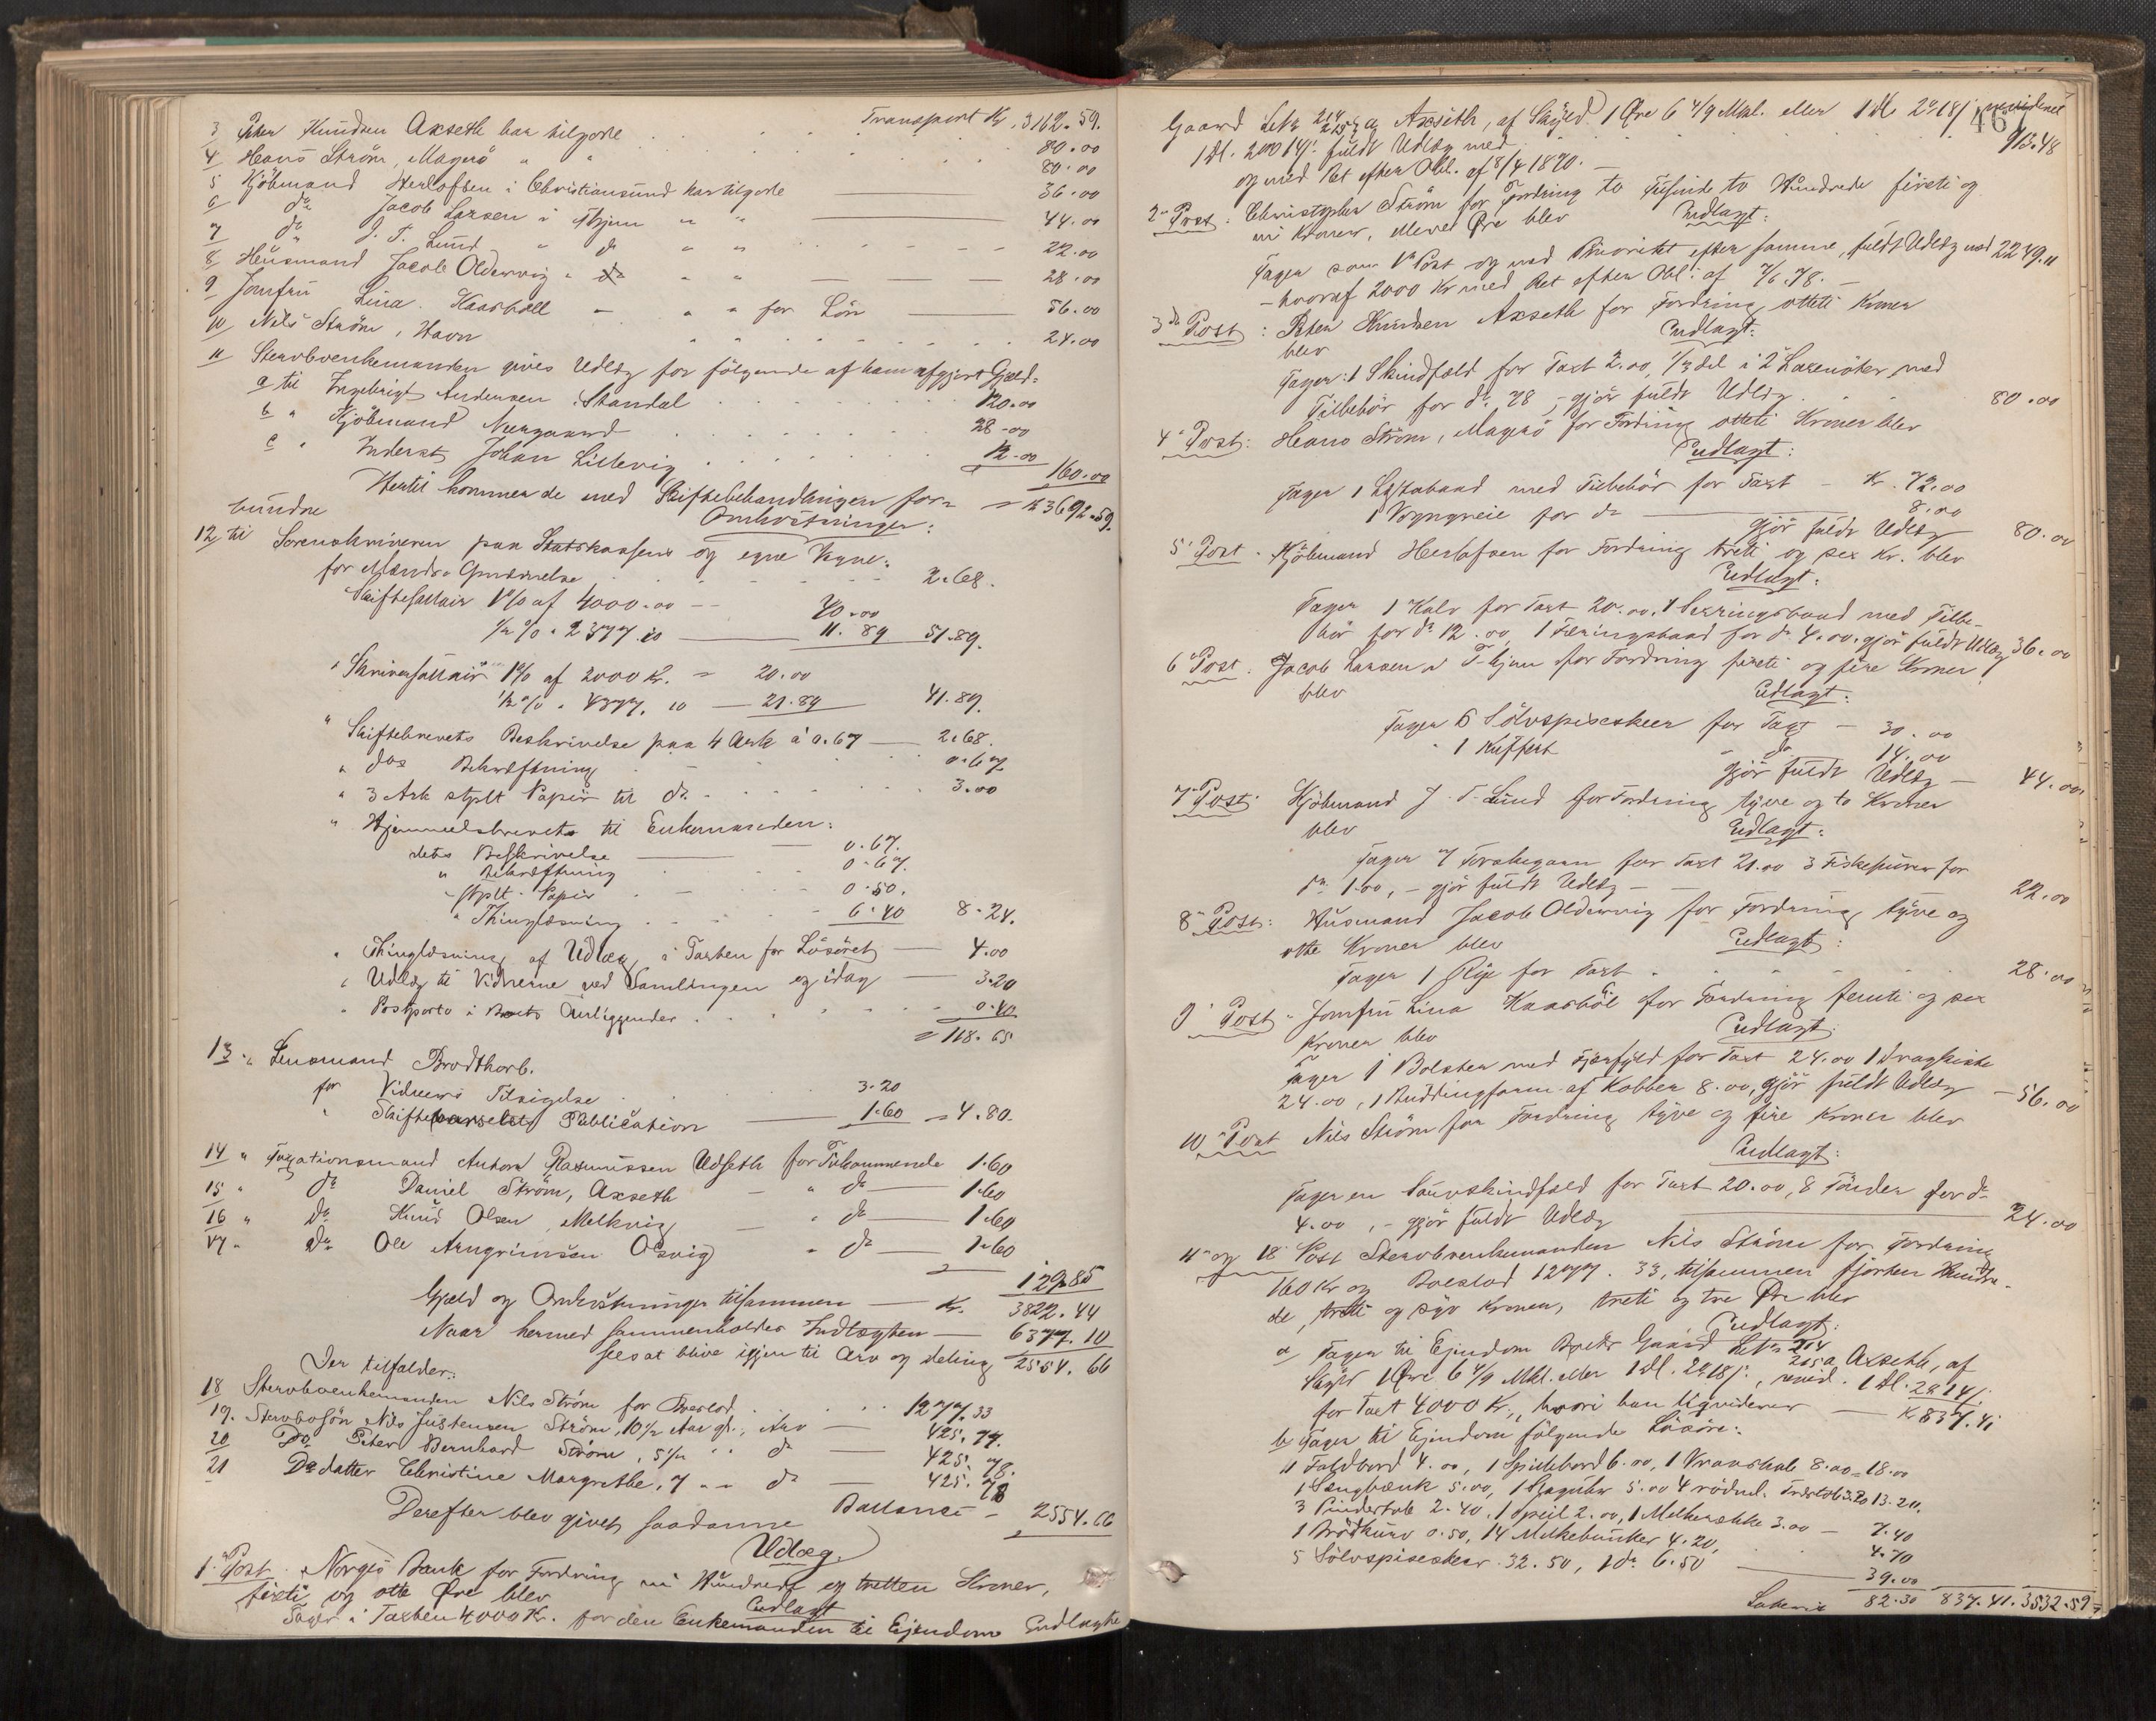 Transport Kr. 3162.59.
3 Peter Knudsen Axseth har tilgode 80.00
4 Hans Ström, Magerö " " 80.00
5 Kjöbmand Herlofsen i Christiansund har tilgode 36.00
6 do Jacob Larsen i Thjem " " 44.00
7 do J. T. Lund " do " " 22.00
8 Husmand Jacob Oldervig " do " " 28.00
9 Jomfru Lina Kaasböll " " for Lön 56.00
10 Nils Ström, Havn " " 24.00
11 Stervboenkemanden gives Udlæg for fölgende af ham afgjort Gjæld:
a til Ingebrigt Andersen Standal 120.00
b " Kjöbmand Neergaard 28.00
c " Inderst Johan Lillevig 12.00
160.00
Hertil kommer de med Skiftebehandlingen for- = Kr 3692.59.
bundne Omkostninger:
12 til Sorenskriveren paa Statskassens og egne Vegne:
for Mænds Opnævnelse 2.68.
Skiftesallair 1% af 4000.00 -- 40.00
1/2 % " 2377.10 11.89 51.89.
" Skriversallair 1% af 2000 Kr. = 20.00
1/2 % " 4377.10 21.89 41.89.
" Skiftebrevets Beskrivelse paa 4 Ark à 0.67 2.68.
" dos Bekræftning 0.67
" 3 Ark stplt Papir til do. 3.00
" Hjemmelsbrevets til Enkemanden:
dets Beskrivelse 0.67.
" Bekræftning 0.67.
" stplt. Papir 0.50.
" Thinglæsning 6.40 8.24.
" Thinglæsning af Udlæg i Taxten for Lösöret 4.00
" Udlæg til Vidnerne ved Samlingen og idag 3.20
" Postporto i Boets Anliggender 0.40
= 118.65
13 " Lensmand Brodtkorb.
for Vidners Tilsigelse 3.20
" Skiftevarselets Publication 1.60 = 4.80.
14 " Taxationsmand Anton Rasmussen Udseth for Tilkommende 1.60
15 " do Daniel Ström, Axseth " do 1.60
16 " do Knud Olsen Melkvig " do 1.60
17 " do Ole Arngrimsen Olsvig " do 1.60
129.85
Gjæld og Omkostninger tilsammen Kr. 3822.44
Naar hermed sammenholdes Indtægten 6377.10
sees at blive igjen til Arv og deling 2554.66
Der tilfalder:
18 Stervboenkemanden Nils Ström for Boeslod 1277.33
19. Stervbosön Nils Justensen Ström, 10 1/2 Aar gl., Arv 425.77.
20 Do Peter Bernhard Ström, 5 1/2 " " do 425.78.
21 Do datter Christine Margrethe, 7 " " do 425.78
Ballance = 2554.66
Derefter blev givet saadanne
Udlæg.
1e Post. Norges Bank for Fordring ni Hundrede og tretten Kroner,
firti og otte Öre blev Udlagt
Tager i Taxten 4000 Kr. for den Enkemanden til Ejendom Udlagte
467
Gaard Lbr 214 215 a Axseth, af Skyld 1 Öre 6 4/9 Mkl. eller 1 Dl. 2 o 18 s, revideret
1 Dl. 2 o 14 s. fuldt Udlæg med 913.48
og med Ret efter Obl. af 8/4 1870. —
2n Post: Christopher Ström for Fordring to Tusinde to Hundrede fireti og
ni Kroner, elleve Öre blev Udlagt:
Tager som 1e Post og med Prioritet efter samme, fuldt Udlæg med 2249.11
— hvoraf 2000 Kr med Ret efter Obl. af 7/6 78. —
3de Post: Peter Knudsen Axseth for Fordring otteti Kroner
blev Udlagt:
Tager: 1 Skindfæld for Taxt 2.00, 1/2 del i 2 Laxenöter med
Tilbehör for do. 78, — gjör fuldt Udlæg 80.00
4e Post: Hans Ström, Magerö for Fordring otteti Kroner blev
Udlagt:
Tager 1 Lystbaad med Tilbehör for Taxt — Kr. 72.00
1 Vogngreie for do 8.00
gjör fuldt Udlæg 80.00
5e Post. Kjöbmand Herlofsen for Fordring treti og sex Kr. blev
Udlagt:
Tager 1 Kalv for Taxt 20.00, 1 Sexringsbaad med Tilbe-
hör for do 12.00 1 Færingsbaad for do. 4.00, gjör fuldt Udlæg 36.00
6e Post. Jacob Larsen i T-hjem for Fordring fireti og fire Kroner
blev Udlagt:
Tager 6 Sölvspiseskeer for Taxt — 30.00
" 1 Kuffert " do 14.00
gjör fuldt Udlæg — 44.00
7e Post. Kjöbmand J. T. Lund for Fordring tyve og to Kroner
blev Udlagt:
Tager 7 Torskegarn for Taxt 21.00 3 Fiskesnörer for
do 1.00, — gjör fuldt Udlæg — 22.00
8e Post: Husmand Jacob Oldervig for Fordring tyve og
otte Kroner blev Udlagt:
Tager 1 Rye for Taxt 28.00
9e Post. Jomfru Lina Kaasböl for Fordring femti og sex
Kroner blev Udlagt:
Tager 1 Bolster med Fjærfyld for Taxt 24.00 1 Dragkiste
24.00, 1 Buddingform af Kobber 8.00, gjör fuldt Udlæg — 56.00
10e Post Nils Ström for Fordring tyve og fire Kroner blev
Udlagt:
Tager en Sauvskindfæld for Taxt 20.00, 8 Tönder for do
4.00, — gjör fuldt Udlæg 24.00
11e og 18e Post Stervboenkemanden Nils Ström for Fordring
160 Kr og Boeslod 1277.33, tilsammen fjorten Hundre-
de, treti og syv Kroner, treti og tre Öre blev
Udlagt:
a, Tager til Ejendom Boets Gaard Lbr 214 215 a Axseth, af
Skyld 1 Öre 6 4/9 Mkl. eller 1 Dl. 2 o 18 s., revid. 1 Dl. 2 o 14 s.
for Taxt 4000 Kr., hvori han liqviderer Kr 837.41
b, Tager til Ejendom fölgende Lösöre:
1 Foldbord 4.00, 1 Spillebord 6.00, 1 Vraaskab 8.00 = 18.00
1 Sengbænk 5.00, 1 Slaguhr 5.00 4 rödml. Træstole 3.20 13.20.
3 Pindestole 2.40, 1 Speil 2.00, 1 Melkerække 3.00 — 7.40
1 Brödkurv 0.50, 14 Melkebunker 4.20, 4.70
5 Sölvspiseskeer 32.50, 1 do 6.50 39.00
Lateris 82.30 837.41. 3532.59